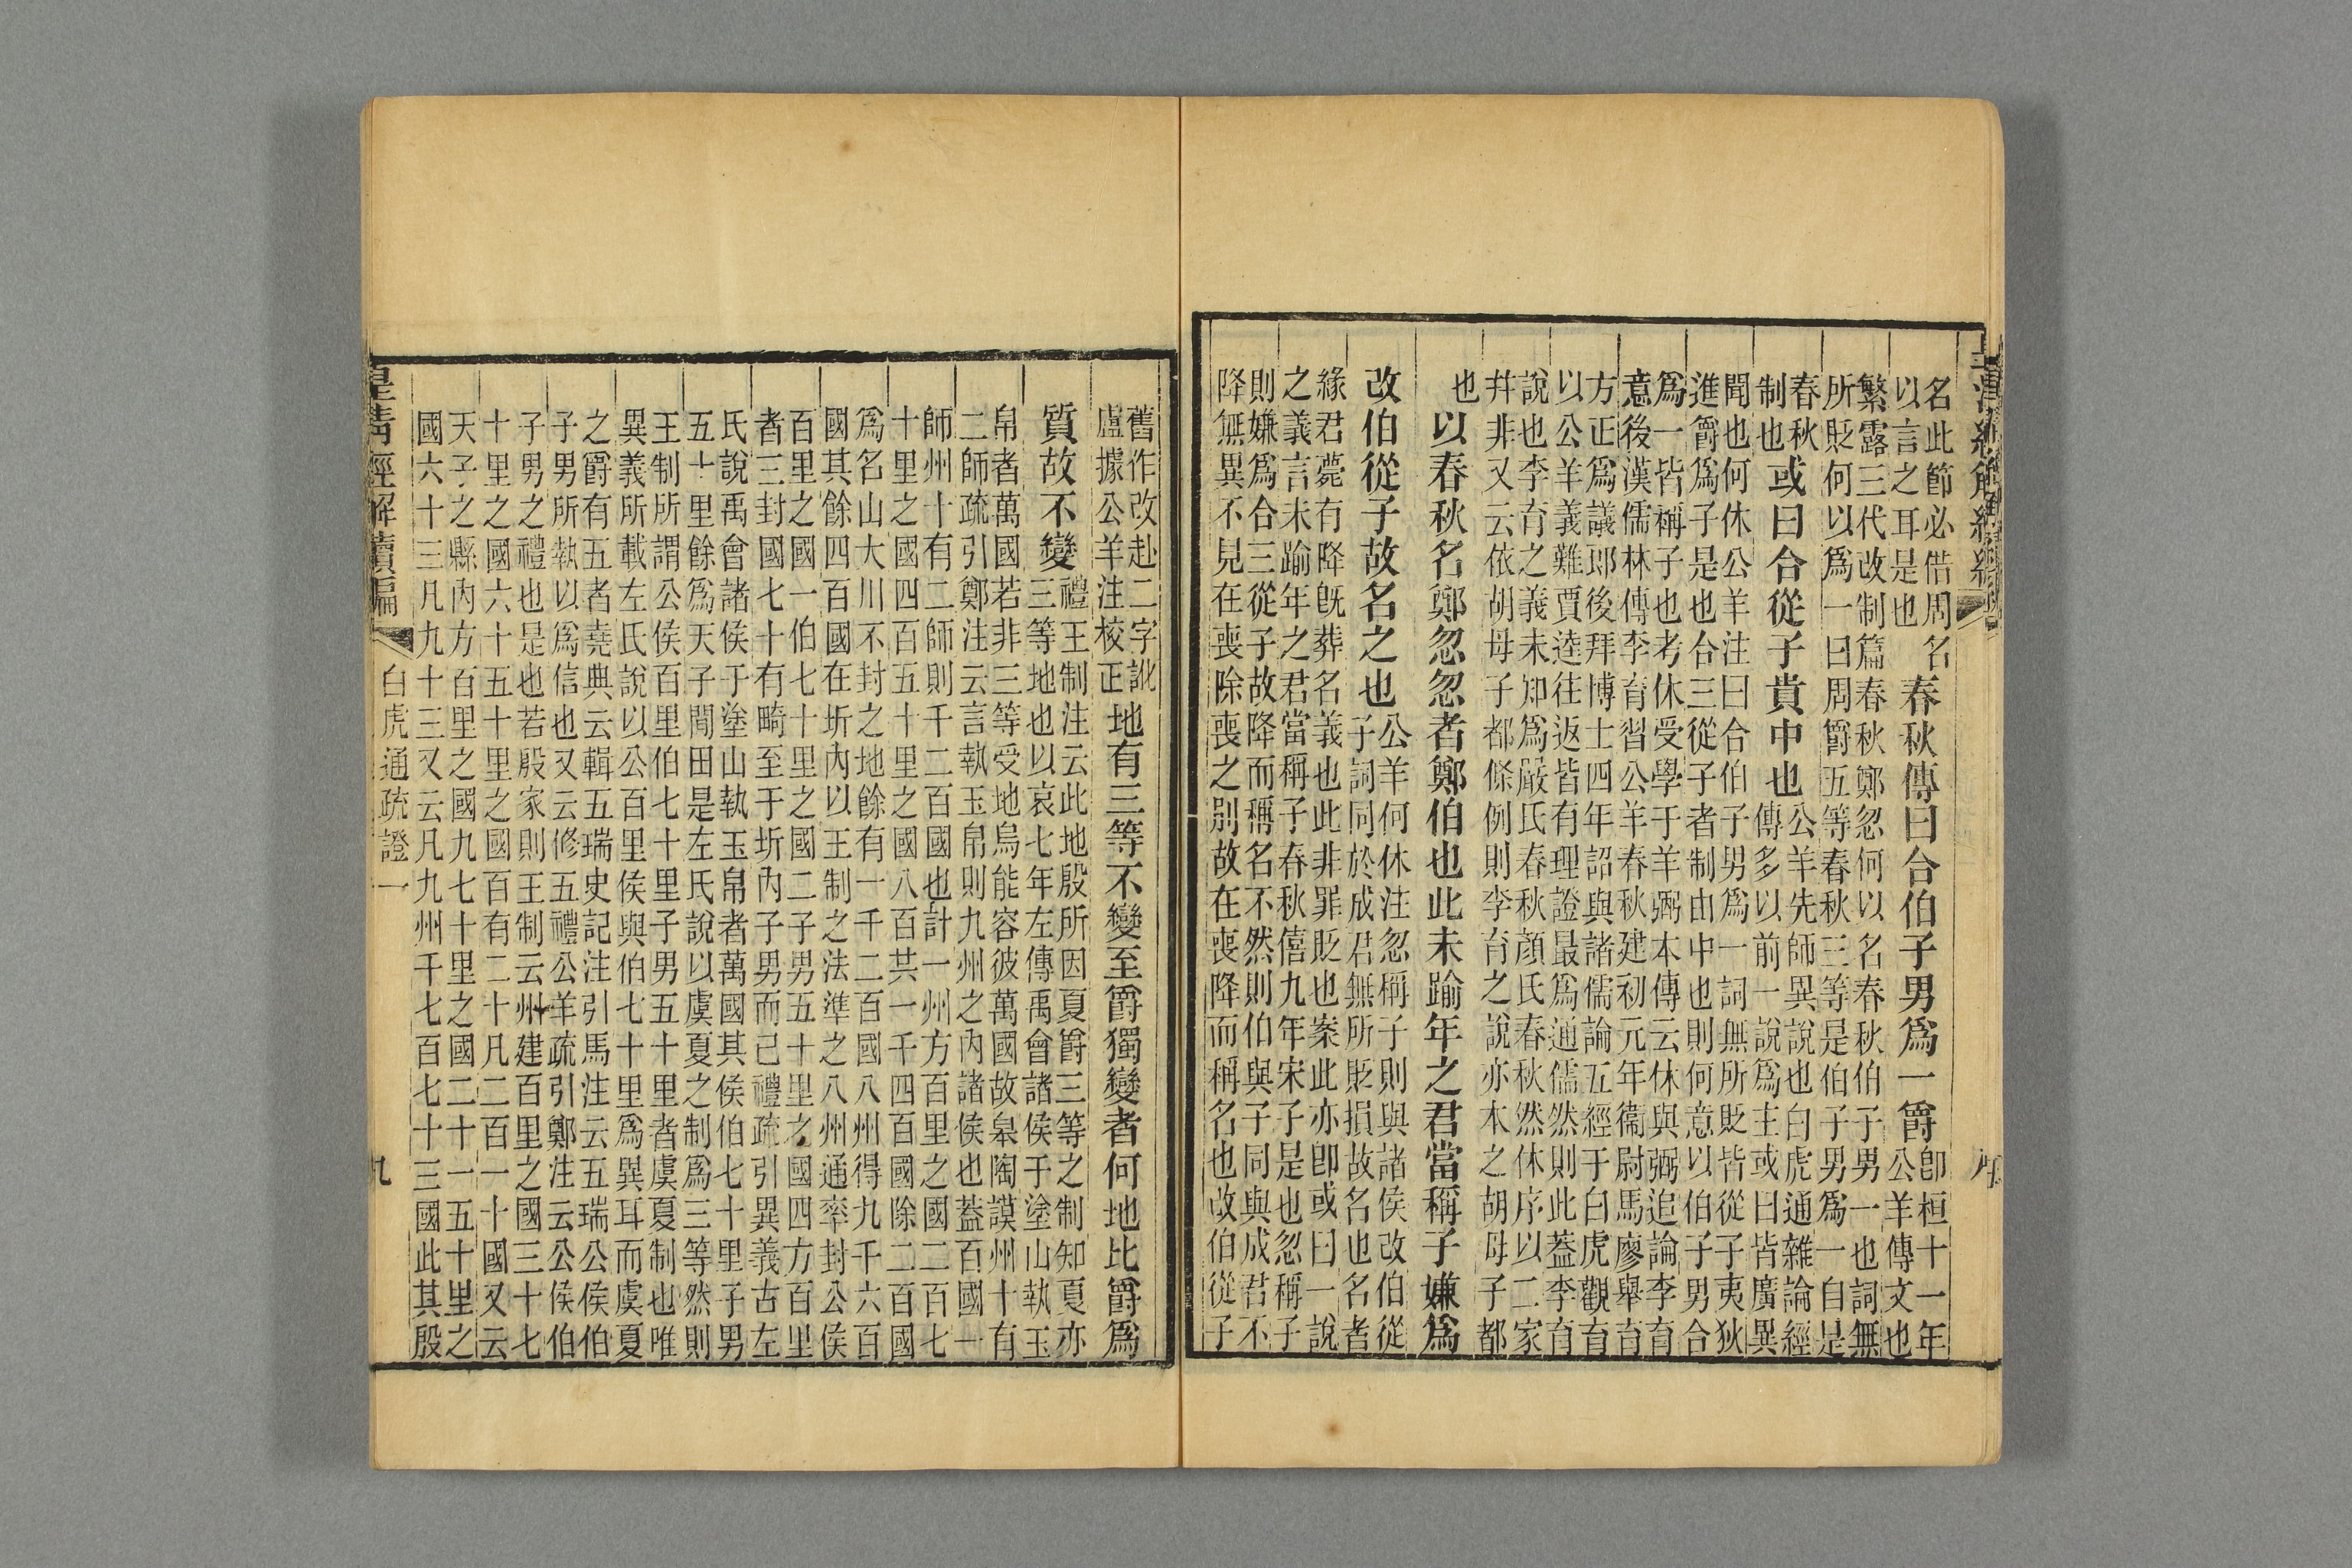 名此節必借周名
以言之耳是也
春秋傳曰合伯子男爲一爵
卽桓十一年
公羊傳文也
繁露三代改制篇春秋鄭忽何以名春秋伯子男一也詞無
所貶何以爲一曰周爵五等春秋三等是伯子男爲一自是
春秋
制也
或曰合從子貴中也
公羊先師異說也白虎通雜論經
傳多以前一說爲主或曰皆廣異
聞也何休公羊注曰合伯子男爲一詞無所貶皆從子夷狄
進爵爲子是也合三從子者制由中也則何意以伯子男合
爲一皆稱子也考休受學于羊弼本傳云休與弼追論李育
意後漢儒林傳李育習公羊春秋建初元年衞尉馬廖舉育
方正爲議郎後拜博士四年詔與諸儒論五經于白虎觀育
以公羊義難賈逵往返皆有理證最爲通儒然則此蓋李育
說也李育之義未知爲嚴氏春秋顏氏春秋然休序以二家
幷非又云依胡母子都條例則李育之說亦本之胡母子都
也
以春秋名鄭忽忽者鄭伯也此未踰年之君當稱子嫌爲
改伯從子故名之也
公羊何休注忽稱子則與諸侯改伯從
子詞同於成君無所貶損故名也名者
緣君薨有降旣葬名義也此非罪貶也案此亦卽或曰一說
之義言未踰年之君當稱子春秋僖九年宋子是也忽稱子
則嫌爲合三從子故降而稱名不然則伯與子同與成君不
降無異不見在喪除喪之別故在喪降而稱名也改伯從子
舊作改赴二字訛
盧據公羊注校正
地有三等不變至爵獨變者何地比爵爲
質故不變
禮王制注云此地殷所因夏爵三等之制知夏亦
三等地也以哀七年左傳禹會諸侯于塗山執玉
帛者萬國若非三等受地烏能容彼萬國故皋陶謨州十有
二師疏引鄭注云言執玉帛則九州之內諸侯也蓋百國一
師州十有二師則千二百國也計一州方百里之國二百七
十里之國四百五十里之國八百共一千四百國除二百國
爲名山大川不封之地餘有一千二百國八州得九千六百
國其餘四百國在圻內以王制之法準之八州通率封公侯
百里之國一伯七十里之國二子男五十里之國四方百里
者三封國七十有畸至于圻內子男而己禮疏引異義古左
氏說禹會諸侯于塗山執玉帛者萬國其侯伯七十里子男
五十里餘爲天子閒田是左氏說以虞夏之制爲三等然則
王制所謂公侯百里伯七十里子男五十里者虞夏制也唯
異義所載左氏說以公百里侯與伯七十里爲異耳而虞夏
之爵有五者堯典云輯五瑞史記注引馬注云五瑞公侯伯
子男所執以爲信也又云修五禮公羊疏引鄭注云公侯伯
子男之禮也是也若殷家則王制云州建百里之國三十七
十里之國六十五十里之國百有二十凡二百一十國又云
天子之縣內方百里之國九七十里之國二十一五十里之
國六十三凡九十三又云凡九州千七百七十三國此其殷
皇清經解續編
白虎通疏證一
九